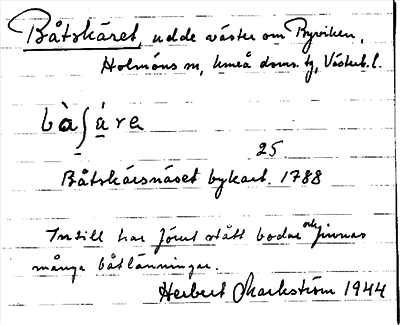 Båtskäret, udde väster om Byviken,
Holmöns sn, Umeå doms. tg, Västerb. l.
bàʃáre
25.
Båtskärsnäset bykart. 1788
Intill har förut stått bodar och finnas
många båtlänningar.
Herbert Markström 1944